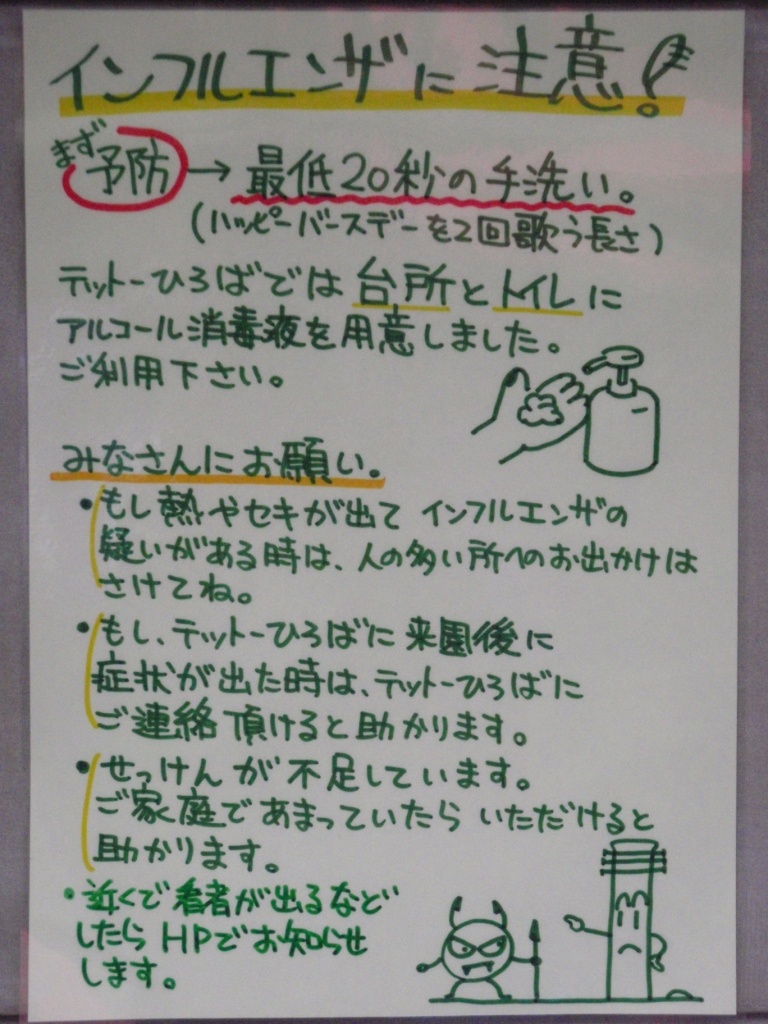 インフルエンザに注意!
まず
予防→最低20秒の手洗い。
(ハッピーバースデーを2回歌う長さ)
テットーひろばでは台所とトイレに
アルコール消毒液を用意しました。
ご利用下さい。
みなさんにお願い。
・もし熱やセキが出てインフルエンザの
疑いがある時は、人の多い所へのお出かけは
さけてね。
・もし、テットーひろばに来園後に
症状が出た時は、テットーひろばに
ご連絡頂けると助かります。
・せっけんが不足しています。
ご家庭であまっていたらいただけると
助かります。
・近くで患者が出るなど
したらHPでお知らせ
します。